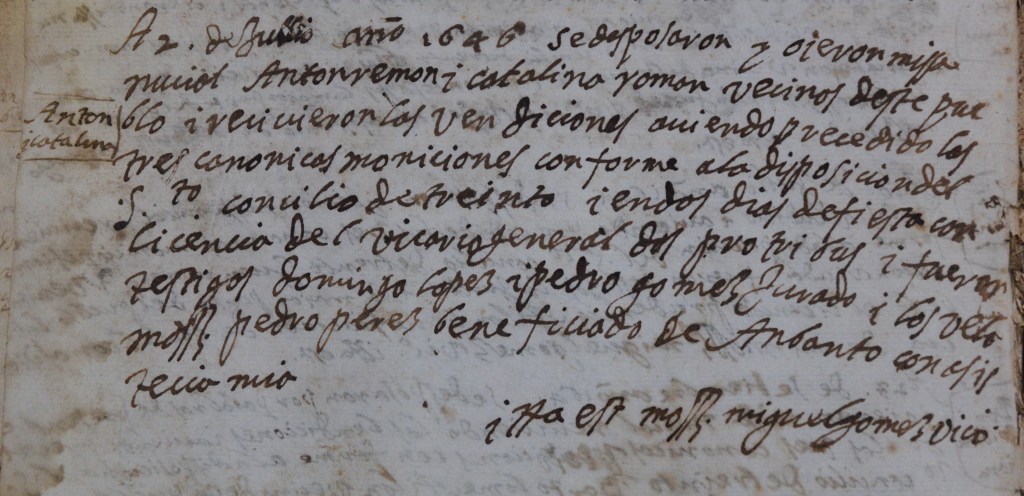 A 2. de Jullio año 1646 se desposaron y oieron missa
nucial Anton remon i catalina roman vecinos deste pue
Anton
i catalina
blo i recivieron las vendiciones aviendo precedido las
tres canonicas moniciones conforme a la disposicion del
S.to concilio de treinto i en dos dias de fiesta con
licencia del vicario general i fueron
testigos domingo lopez i pedro gomez Jurado i los velo
moss. pedro perez beneficiado de Anbanto con asis
tecia mia
ita est moss. miguel Gomez vic.o